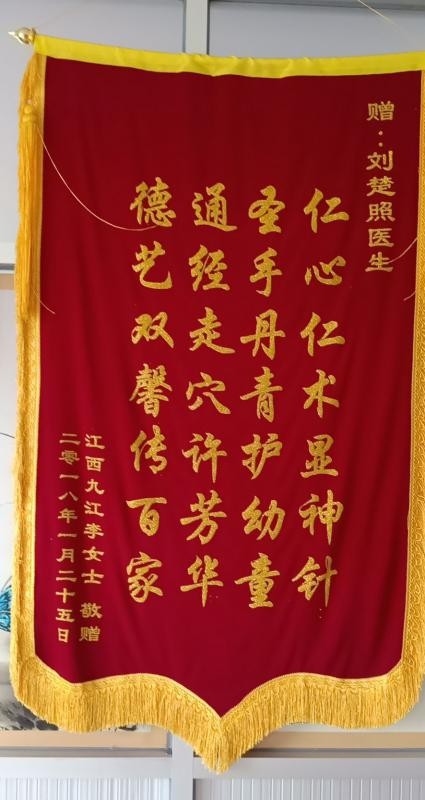 赠：刘楚照医生
仁心仁术显神针
圣手丹青护幼童
通经走穴许芳华
德艺双馨传百家
江西九江李女士 敬赠
二零一八年一月二十五日